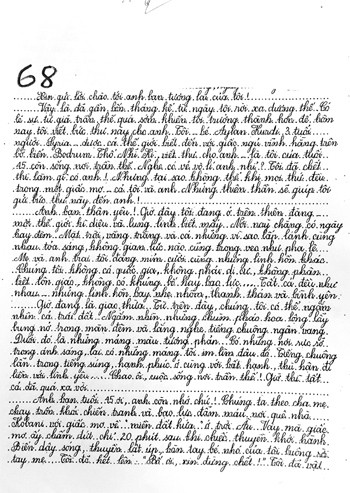 68
Xin gửi lời chào tới anh bạn tương lai của tôi!
Vậy là đã gần bốn tháng kể từ ngày tôi rời xa dương thế. Có
lẽ sự từ giã trần thế quá sớm khiến tôi trưởng thành hơn để hôm
nay tôi viết bức thư này cho anh. Tôi - bé Aylan Kurdi, 3 tuổi
người Syria - được cả thế giới biết đến với giấc ngủ vĩnh hằng trên
bờ biển Bodrum Thổ Nhĩ Kỳ, viết thư cho anh - là tôi của tuổi
15 còn sống nơi trần thế. Nghe có vẻ vô lí anh nhỉ? Tôi đã chết
thì làm gì có anh! Nhưng tại sao không thể khi mọi thứ đều
trong một giấc mơ - cả tôi và anh. Những thiên thần sẽ giúp tôi
gửi bức thư này đến anh!
Anh bạn thân yêu! Giờ đây tôi đang ở trên thiên đàng -
một thế giới kì diệu và lung linh biết mấy. Nơi này chẳng có ngày
hay đêm. Mặt trời, vầng trăng và cả những vì sao lấp lánh cùng
nhau tỏa sáng, không gian lúc nào cũng trong veo như pha lê.
Mẹ và anh trai tôi đang mỉm cười cùng những linh hồn khác.
Chúng tôi, không có quốc gia, không phải di cư, không phân
biệt tôn giáo, không có khủng bố hay bạo lực... Tất cả đều như
nhau - những linh hồn bay nhè nhàng, thanh thản và bình yên.
Giờ đang là giao thừa. Từ trên đây, chúng tôi có thể ngắm
nhìn cả trái đất. Ngắm nhìn những chùm pháo hoa lộng lẫy
bung nở trong màn đêm và lắng nghe tiếng chuông ngân vang.
Dưới đó là những mảng màu tương phản. Có những nơi rực rỡ
trong ánh sáng, lại có những mảng tối im lìm đâu đó. Tiếng chuông
lẫn trong tiếng súng, hạnh phúc ở cùng với bất hạnh, thù hận đi
liền với tình yêu... Chao ôi, cuộc sống nơi trần thế! Giờ thì tất
cả đã quá xa vời...
Anh bạn tuổi 15 ơi, anh còn nhớ chứ! Chúng ta theo cha mẹ
chạy trốn khỏi chiến tranh và bạo lực đẫm máu nơi quê nhà
Kobani với giấc mơ về "miền đất hứa" ở trời Âu. Vậy mà giấc
mơ ấy chấm dứt chỉ 20 phút sau khi chiếc thuyền khởi hành.
Biển dậy sóng, thuyền lật úp, bàn tay bé nhỏ của tôi tuột khỏi
tay mẹ. Tôi đã hét lên: "Bố ơi, xin đừng chết!". Tôi đã vật